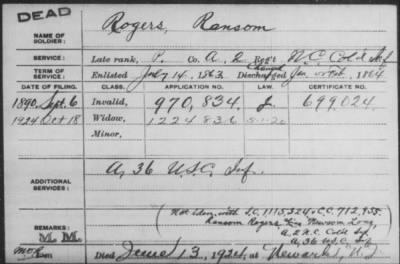 DEAD
NAME OF SOLDIER: Rogers, Ransom
SERVICE: Late rank, P. Co. A, 2 Reg't N.C. Cold Inf
TERM OF SERVICE: Enlisted July 14, 1863 Discharged Jan, 1864
DATE OF FILING. CLASS. APPLICATION NO. LAW. CERTIFICATE NO.
1890 Sept. 6 Invalid, 970,834 J 699,024
1924 Oct 18 Widow, 1224836 5-1-20
Minor,
ADDITIONAL SERVICES: A, 36 U.S.C. Inf.
REMARKS: (Not iden, with I.C. 1115,324 = C.C. 712,955.
Ransom Rogers Newsom Long,
A, 2 N.C. Cold Inf.
A, 36 U.S.C. Inf
M. M.
Died June 13, 1924, at Newark, N.J.